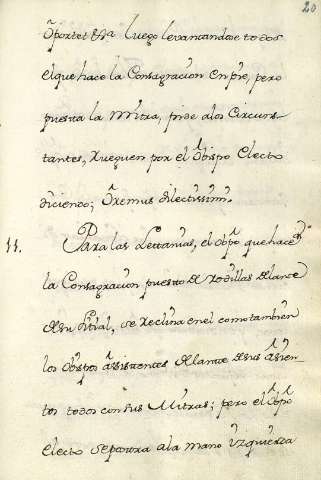 20
Oportet &ª luego levantandose todos
el que hace la Consagracion en pie, pero
puesta la Mitra, pide a los Circuns-
tantes, rueguen por el Obispo Electo
diciendo; Oremus dilectissimi.
11. Para las Lettanias, el Obpo que hace
la Consagracion puesto de rodillas delante
de su sitial, se reclina en el como tambien
los Obispos asistentes delante de sus asien-
tos todos con sus Mitras; pero el Obpo
Electo se postra a la mano izquierda